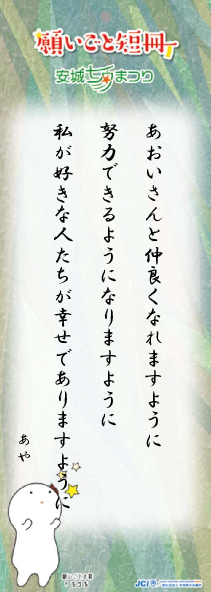 願いごと短冊
安城七夕まつり
あおいさんと仲良くなれますように
努力できるようになりますように
私が好きな人たちが幸せでありますように
あや
JCI